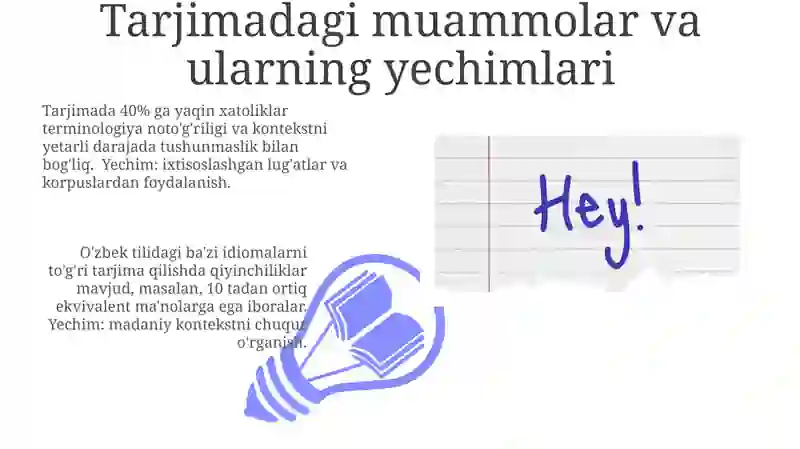 Tarjimadagi muammolar va
ularning yechimlari
Tarjimada 40% ga yaqin xatoliklar
terminologiya noto'g'riligi va kontekstni
yetarli darajada tushunmaslik bilan
bog'liq.  Yechim: ixtisoslashgan lug'atlar va
korpuslardan foydalanish.
Hey!
O'zbek tilidagi ba'zi idiomalarni
to'g'ri tarjima qilishda qiyinchiliklar
mavjud, masalan, 10 tadan ortiq
ekvivalent ma'nolarga ega iboralar.
Yechim: madaniy kontekstni chuqur
o'rganish.